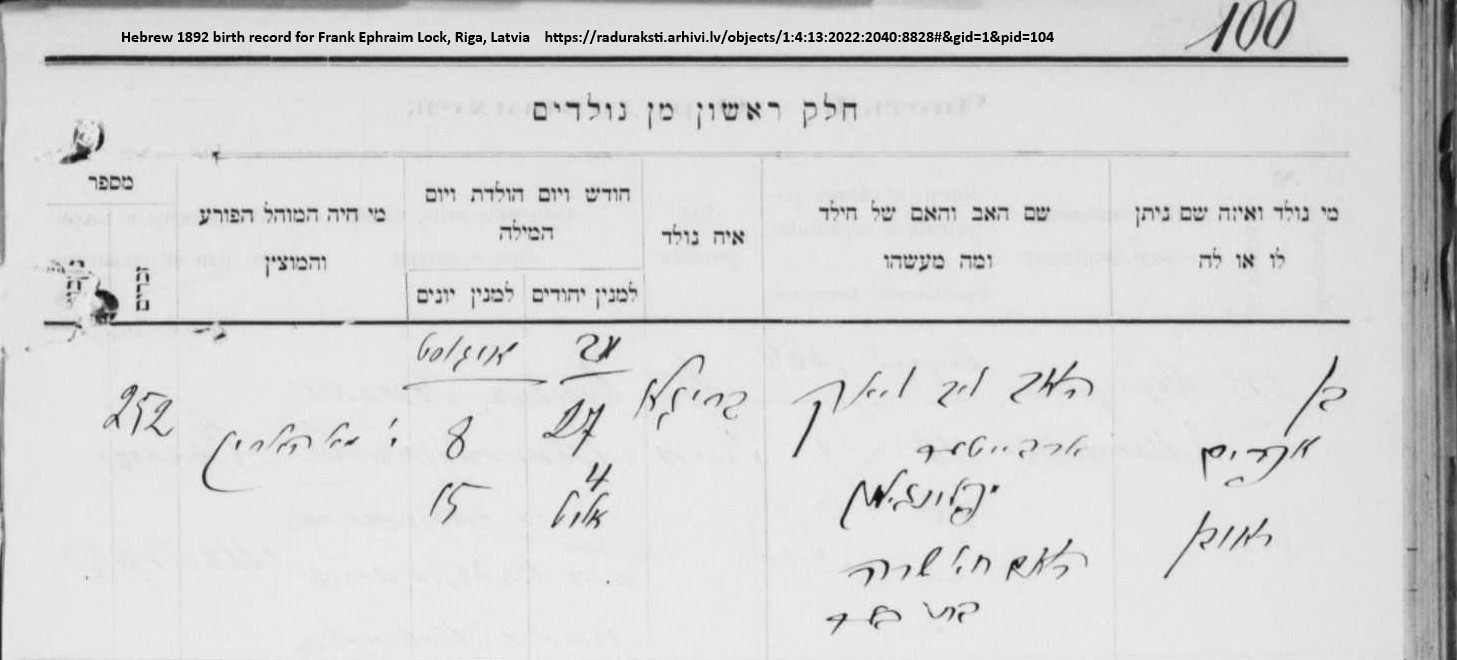 100
Hebrew 1892 birth record for Frank Ephraim Lock, Riga, Latvia https://raduraksti.arhivi.lv/objects/1:4:13:2022:2040:8828#&gid=1&pid=104
חלק ראשון מן נולדים
מי נולד ואיזה שם ניתן
לו או לה
שם האב והאם של הילד
ומה מעשהו
איה נולד
חודש ויום הולדת ויום
המילה
למנין יהודים
למנין יונים
מי היה המוהל הפורע
והמוצץ
מספר
בן
אפרים
ראובן
האב ליב
האם חי' שרה
בריגא
אב
27
4
אלול
אויגוסט
8
15
252